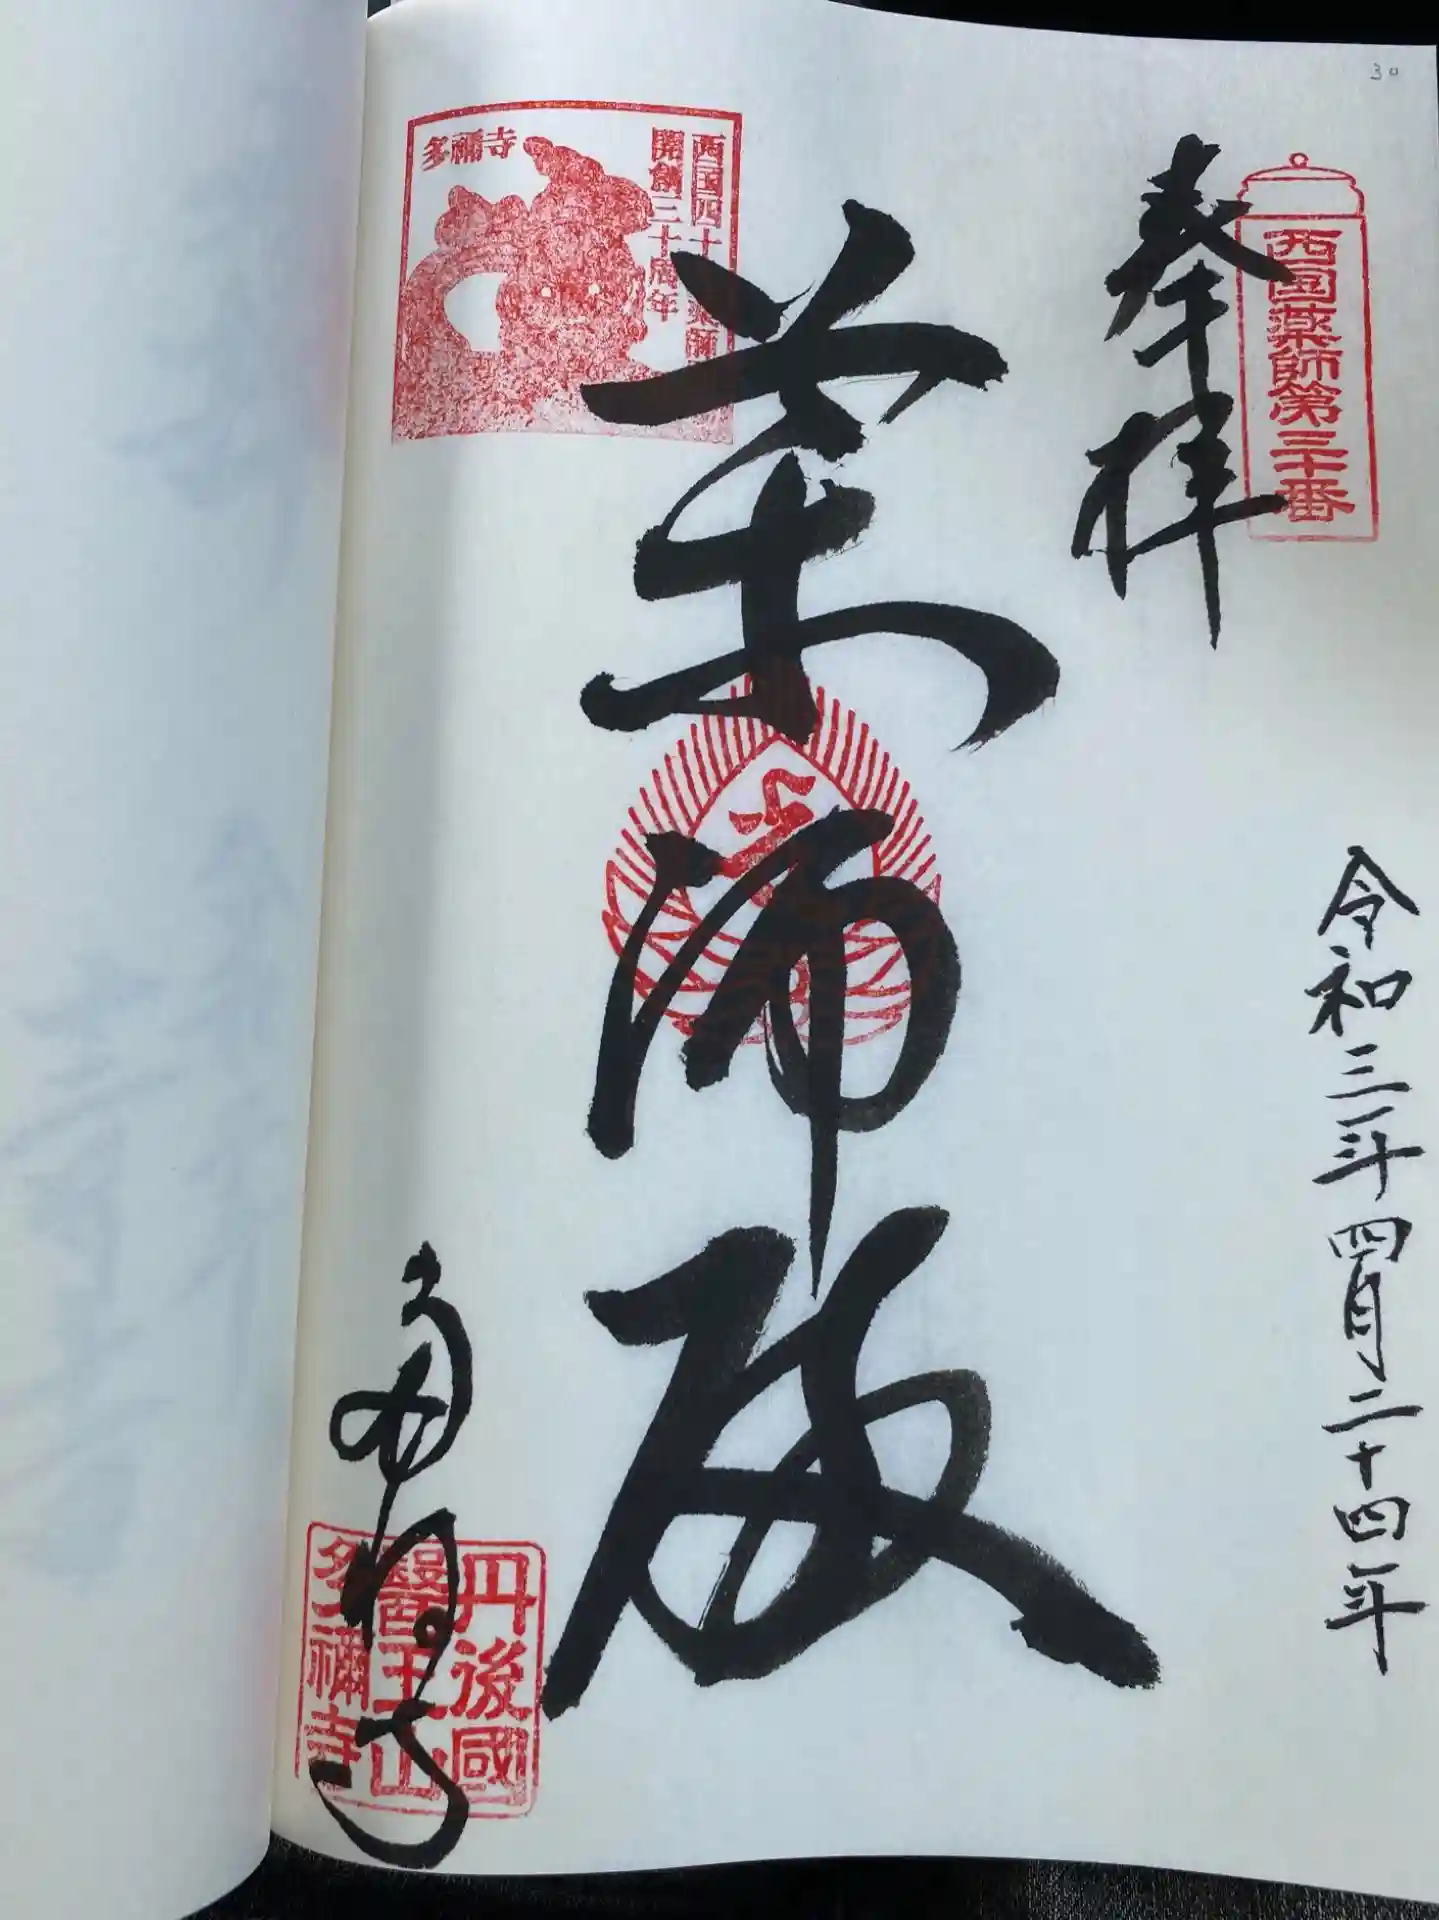 30
西国薬師第三十番
奉拝
令和三年四月二十四年
西国四十薬師
開創三十周年
多禰寺
薬師殿
多禰寺
丹後國
醫王山
多禰寺